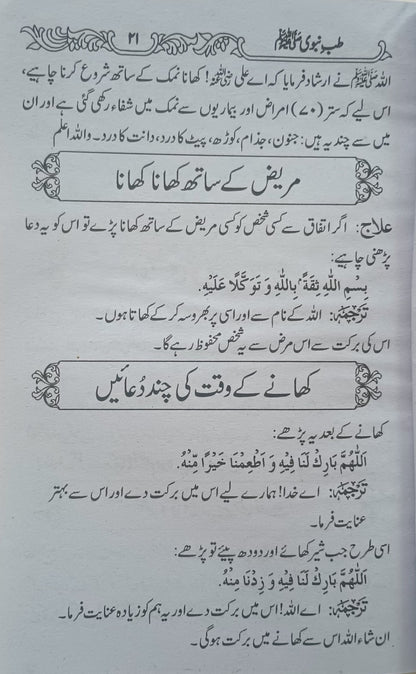 طب نبوی ﷺ
۲۱
اللہ ﷺ نے ارشاد فرمایا کہ اے علی ؓ! کھانا نمک کے ساتھ شروع کرنا چاہیے،
اس لیے کہ ستر (۷۰) امراض اور بیماریوں سے نمک میں شفاء رکھی گئی ہے اور ان
میں سے چند یہ ہیں: جنون، جذام، کوڑھ، پیٹ کا درد، دانت کا درد۔ واللہ اعلم
مریض کے ساتھ کھانا کھانا
علاج: اگر اتفاق سے کسی شخص کو کسی مریض کے ساتھ کھانا پڑے تو اس کو یہ دعا
پڑھنی چاہیے:
بِسْمِ اللّٰهِ ثِقَةً بِاللّٰهِ وَ تَوَكُّلًا عَلَيْهِ.
ترجمہ: اللہ کے نام سے اور اسی پر بھروسہ کر کے کھاتا ہوں۔
اس کی برکت سے اس مرض سے یہ شخص محفوظ رہے گا۔
کھانے کے وقت کی چند دُعائیں
کھانے کے بعد یہ پڑھے:
اَللّٰهُمَّ بَارِكْ لَنَا فِيْهِ وَ اَطْعِمْنَا خَيْرًا مِّنْهُ.
ترجمہ: اے خدا! ہمارے لیے اس میں برکت دے اور اس سے بہتر
عنایت فرما۔
اسی طرح جب شیر کھائے اور دودھ پیئے تو پڑھے:
اَللّٰهُمَّ بَارِكْ لَنَا فِيْهِ وَ زِدْنَا مِنْهُ.
ترجمہ: اے اللہ! اس میں برکت دے اور یہ ہم کو زیادہ عنایت فرما۔
ان شاء اللہ اس سے کھانے میں برکت ہوگی۔